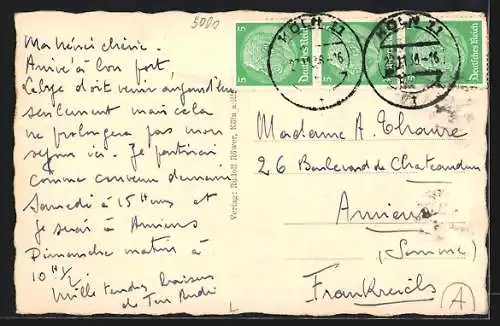 3000
Ma Chérie chérie.
Arrivé à bon port,
Lebge doit venir aujourd'hui
seulement mais cela
ne prolongera pas mon
séjour ici. Je partirai
comme convenu demain
Samedi à 15 Heures et
je serai à Amiens
Dimanche matin à
10 H 1/2.
Mille tendres baisers
de Ton André
Verlag: Rudolf Röwer, Köln
5 5 5 Deutsches Reich
KÖLN 11
KÖLN 11
Madame A. Thouvre
26 Boulevard de Chateaudun
Amiens
(Somme)
Frankreich
A